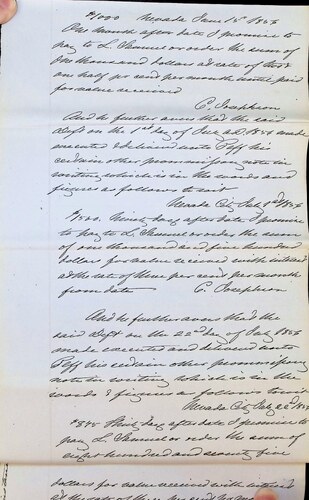 $1000 Nevada June 15th 1856
One month after date I promise to
pay to L Samuel or order the sum of
One thousand dollars at rate of three
an half per cent per month until paid
for value received
C. Josephson
And he further avers that the said
Deft on the 1st day of July AD 1856 made
executed & delivered unto Plff his
certain other promissory note in
writing which is in the words and
figures as follows to wit
Nevada City July 1st 1856
$1500. Thirty days after date I promise
to pay to L. Samuel or order the sum
of one thousand and five hundred
dollars for value received with interest
at the rate of three per cent per month
from date C. Josephson
And he further avers that the
said Deft on the 22nd day of July 1856
made executed and delivered unto
Plff his certain other promissory
note in writing which is in the
words & figures as follows to wit
Nevada City July 22nd 1856
Thirty days after date I promise to
pay L. Samuel or order the sum of
eight hundred and seventy five
dollars for value received with interest
at the rate of three per cent per